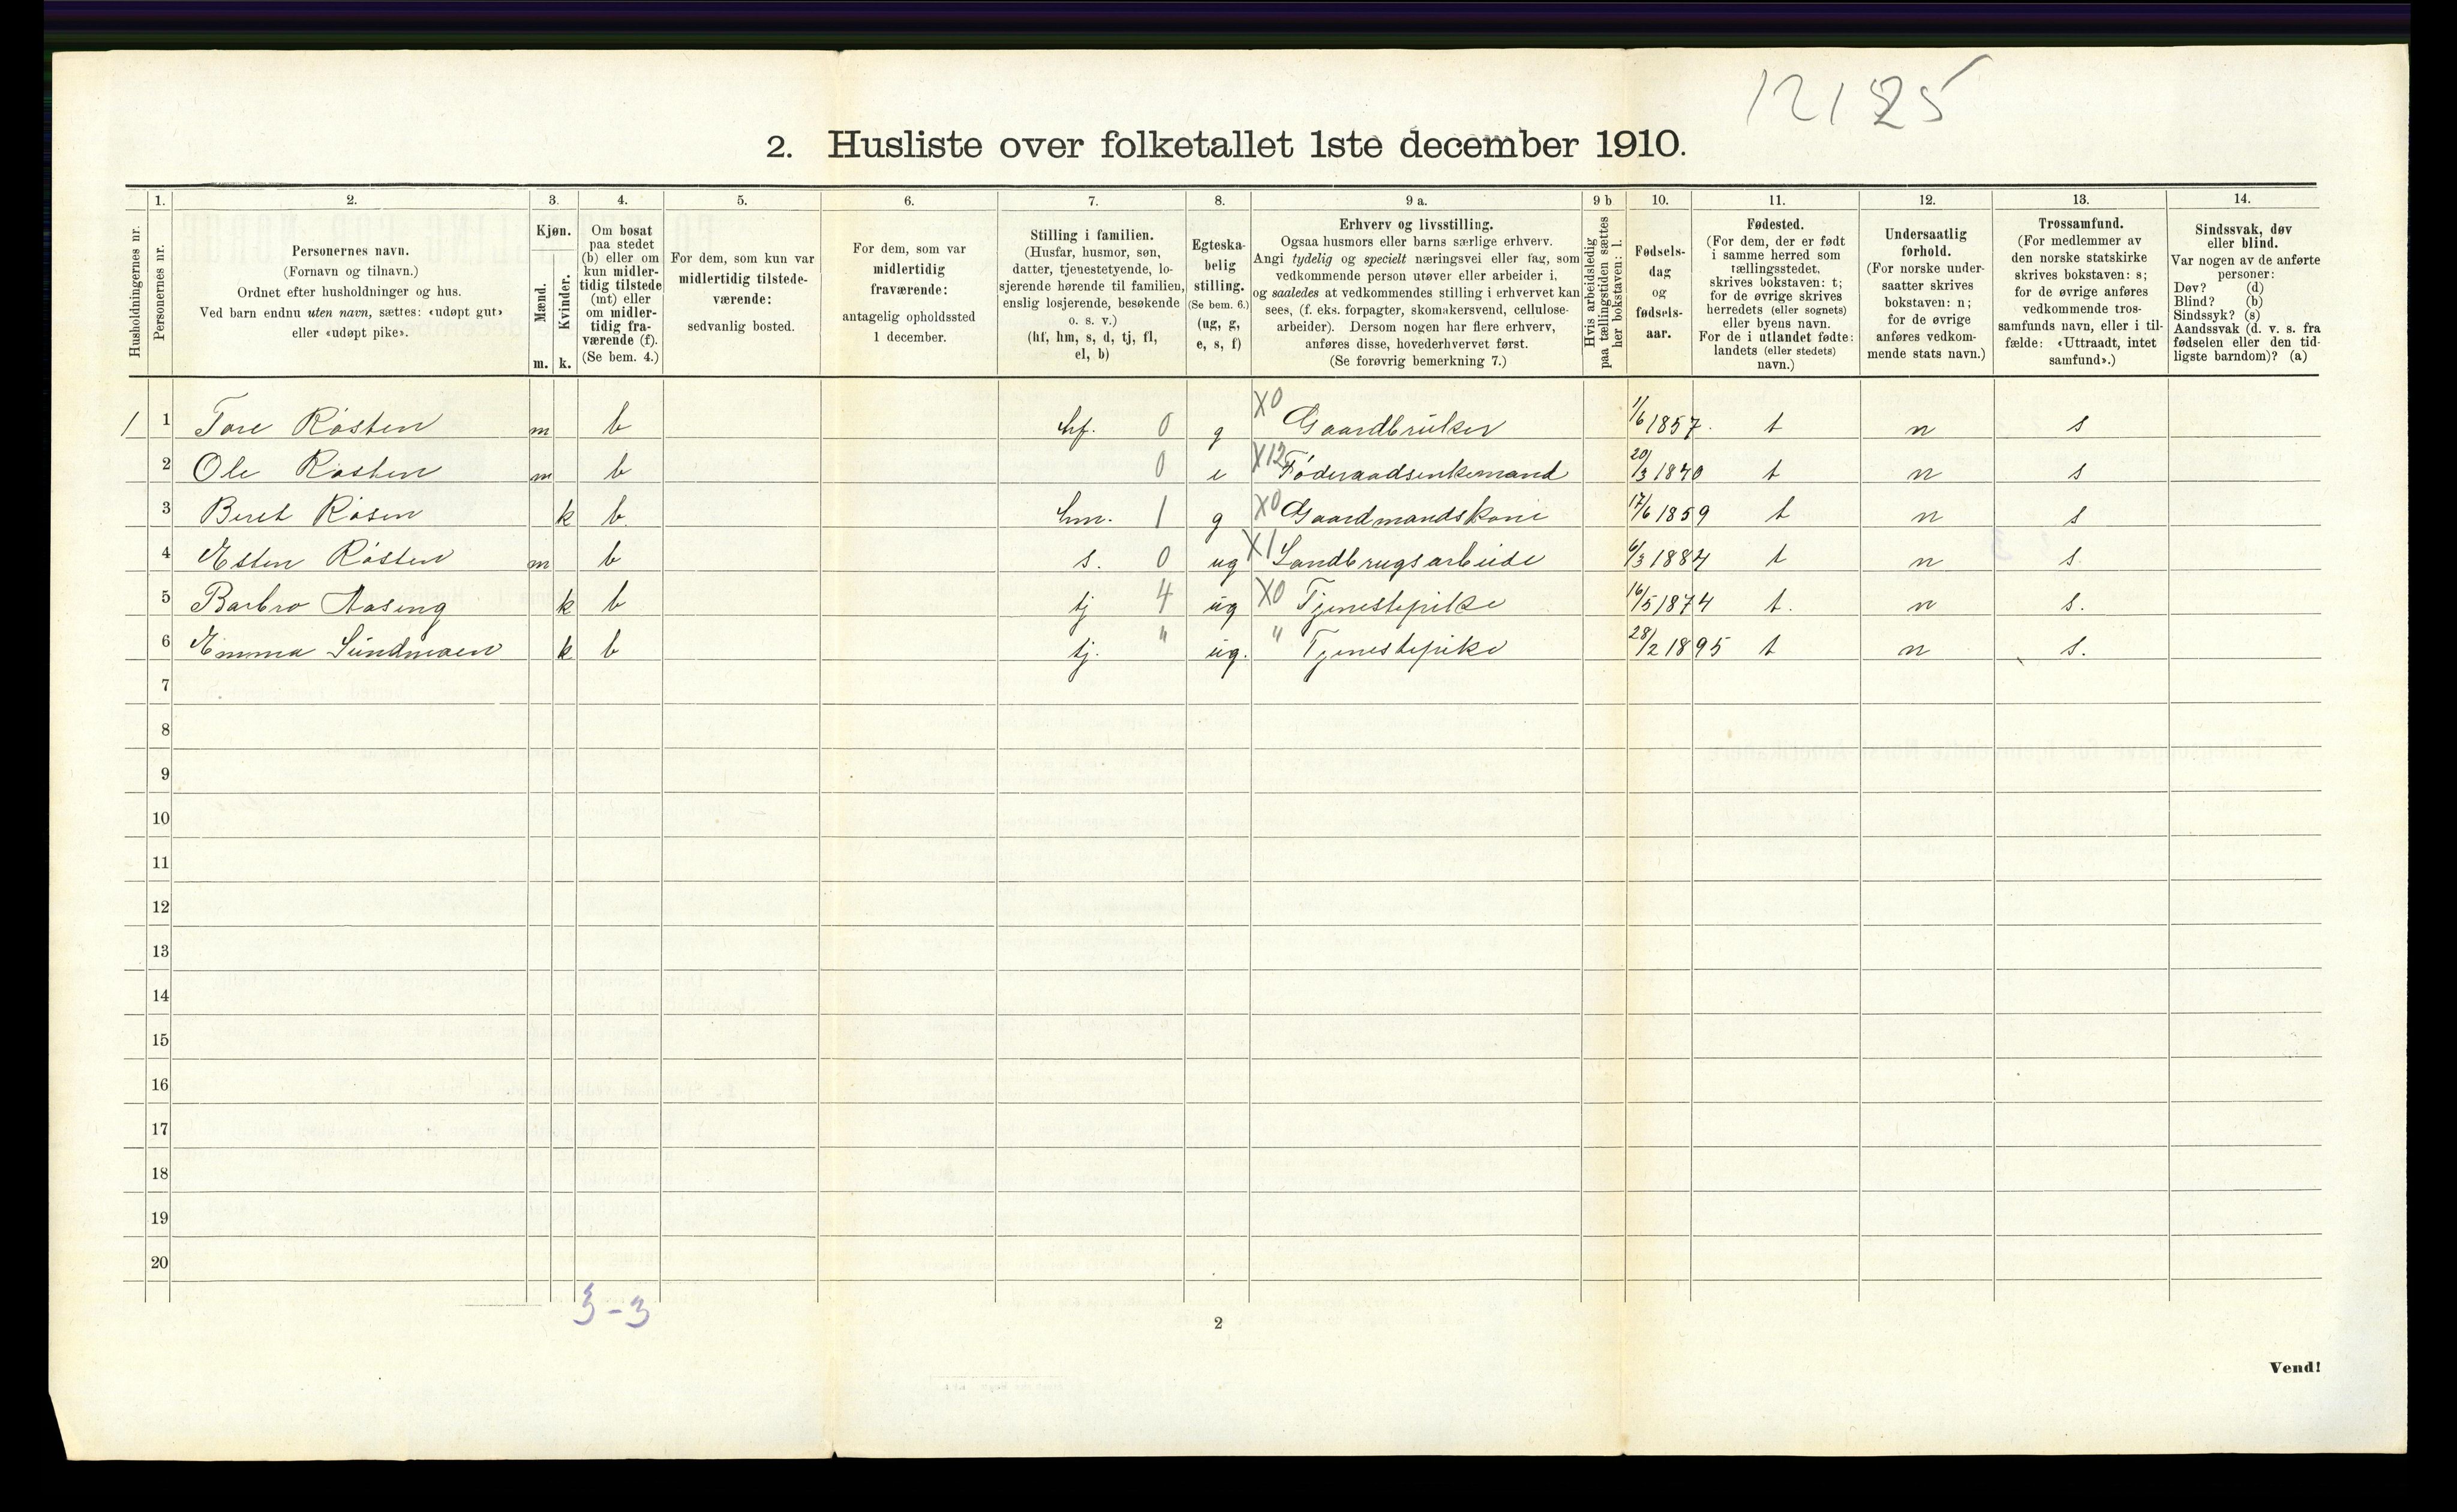 12125
2. Husliste over folketallet 1ste december 1910.
Husholdningernes nr.
1.
Personernes nr.
2.
Personernes navn.
(Fornavn og tilnavn.)
Ordnet efter husholdninger og hus.
Ved barn endnu uten navn, sættes: «udøpt gut»
eller «udøpt pike».
3.
Kjøn.
Mænd.
m.
Kvinder.
k.
4.
Om bosat
paa stedet
(b) eller om
kun midler-
tidig tilstede
(mt) eller
om midler-
tidig fra-
værende (f).
(Se bem. 4.)
5.
For dem, som kun var
midlertidig tilstede-
værende:
sedvanlig bosted.
6.
For dem, som var
midlertidig
fraværende:
antagelig opholdssted
1 december.
7.
Stilling i familien.
(Husfar, husmor, søn,
datter, tjenestetyende, lo-
sjerende hørende til familien,
enslig losjerende, besøkende
o. s. v.)
(hf, hm, s, d, tj, fl,
el, b)
8.
Egteska-
belig
stilling.
(Se bem. 6.)
(ug, g,
e, s, f)
9 a.
Erhverv og livsstilling.
Ogsaa husmors eller barns særlige erhverv.
Angi tydelig og specielt næringsvei eller fag, som
vedkommende person utøver eller arbeider i,
og saaledes at vedkommendes stilling i erhvervet kan
sees, (f. eks. forpagter, skomakersvend, cellulose-
arbeider). Dersom nogen har flere erhverv,
anføres disse, hovederhvervet først.
(Se forøvrig bemerkning 7.)
9 b
Hvis arbeidsledig
paa tællingstiden sættes
her bokstaven: l.
10.
Fødsels-
dag
og
fødsels-
aar.
11.
Fødested.
(For dem, der er født
i samme herred som
tællingsstedet,
skrives bokstaven: t;
for de øvrige skrives
herredets (eller sognets)
eller byens navn.
For de i utlandet fødte:
landets (eller stedets)
navn.)
12.
Undersaatlig
forhold.
(For norske under-
saatter skrives
bokstaven: n;
for de øvrige
anføres vedkom-
mende stats navn.)
13.
Trossamfund.
(For medlemmer av
den norske statskirke
skrives bokstaven: s;
for de øvrige anføres
vedkommende tros-
samfunds navn, eller i til-
fælde: «Uttraadt, intet
samfund».)
14.
Sindssvak, døv
eller blind.
Var nogen av de anførte
personer:
Døv? (d)
Blind? (b)
Sindssyk? (s)
Aandssvak (d. v. s. fra
fødselen eller den tid-
ligste barndom)? (a)
1 1 Tore Røsten m b hf. 0 g X0 Gaardbruker 1/6 1857. t n s
2 Ole Røsten m b 0 e X12 Føderaadsenkemand 20/3 t n s
3 Beret Røsen k b hm. 1 g X0 Gaardmandskone 17/6 1859 t n s
4 Esten Røsten m b s. 0 ug X1 Landbrugsarbeide 6/3 1884 t n s.
5 Barbro Aaseng k b tj 4 ug X0 Tjenestepike 16/5 1874 t. n s.
6 Emma Sundmoen k b tj. " ug. " Tjenestepike 28/2 1895 t n s.
7
8
9
10
11
12
13
14
15
16
17
18
19
20
3-3
2
Vend!